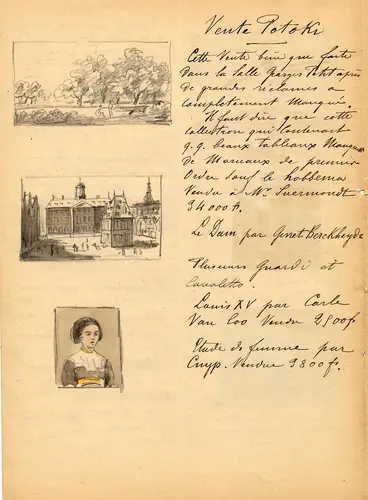 Vente Potoki
Cette Vente bien que faite
Dans la Salle Georges Petit après
de grandes réclames a
complètement manqué.
Il faut dire que cette
collection qui contenait
q.q. beaux tableaux manquait
de Morceaux de premier
Ordre sauf le hobbema
Vendu à Mr. Suermondt
34000 fr.
Le Dam par Gerret Berckheyde
Plusieurs Guardi et
Canaletto.
Louis XV par Carle
Van Loo Vendu 2500 f.
Etude de femme par
Cuyp. Vendue 9800 fr.